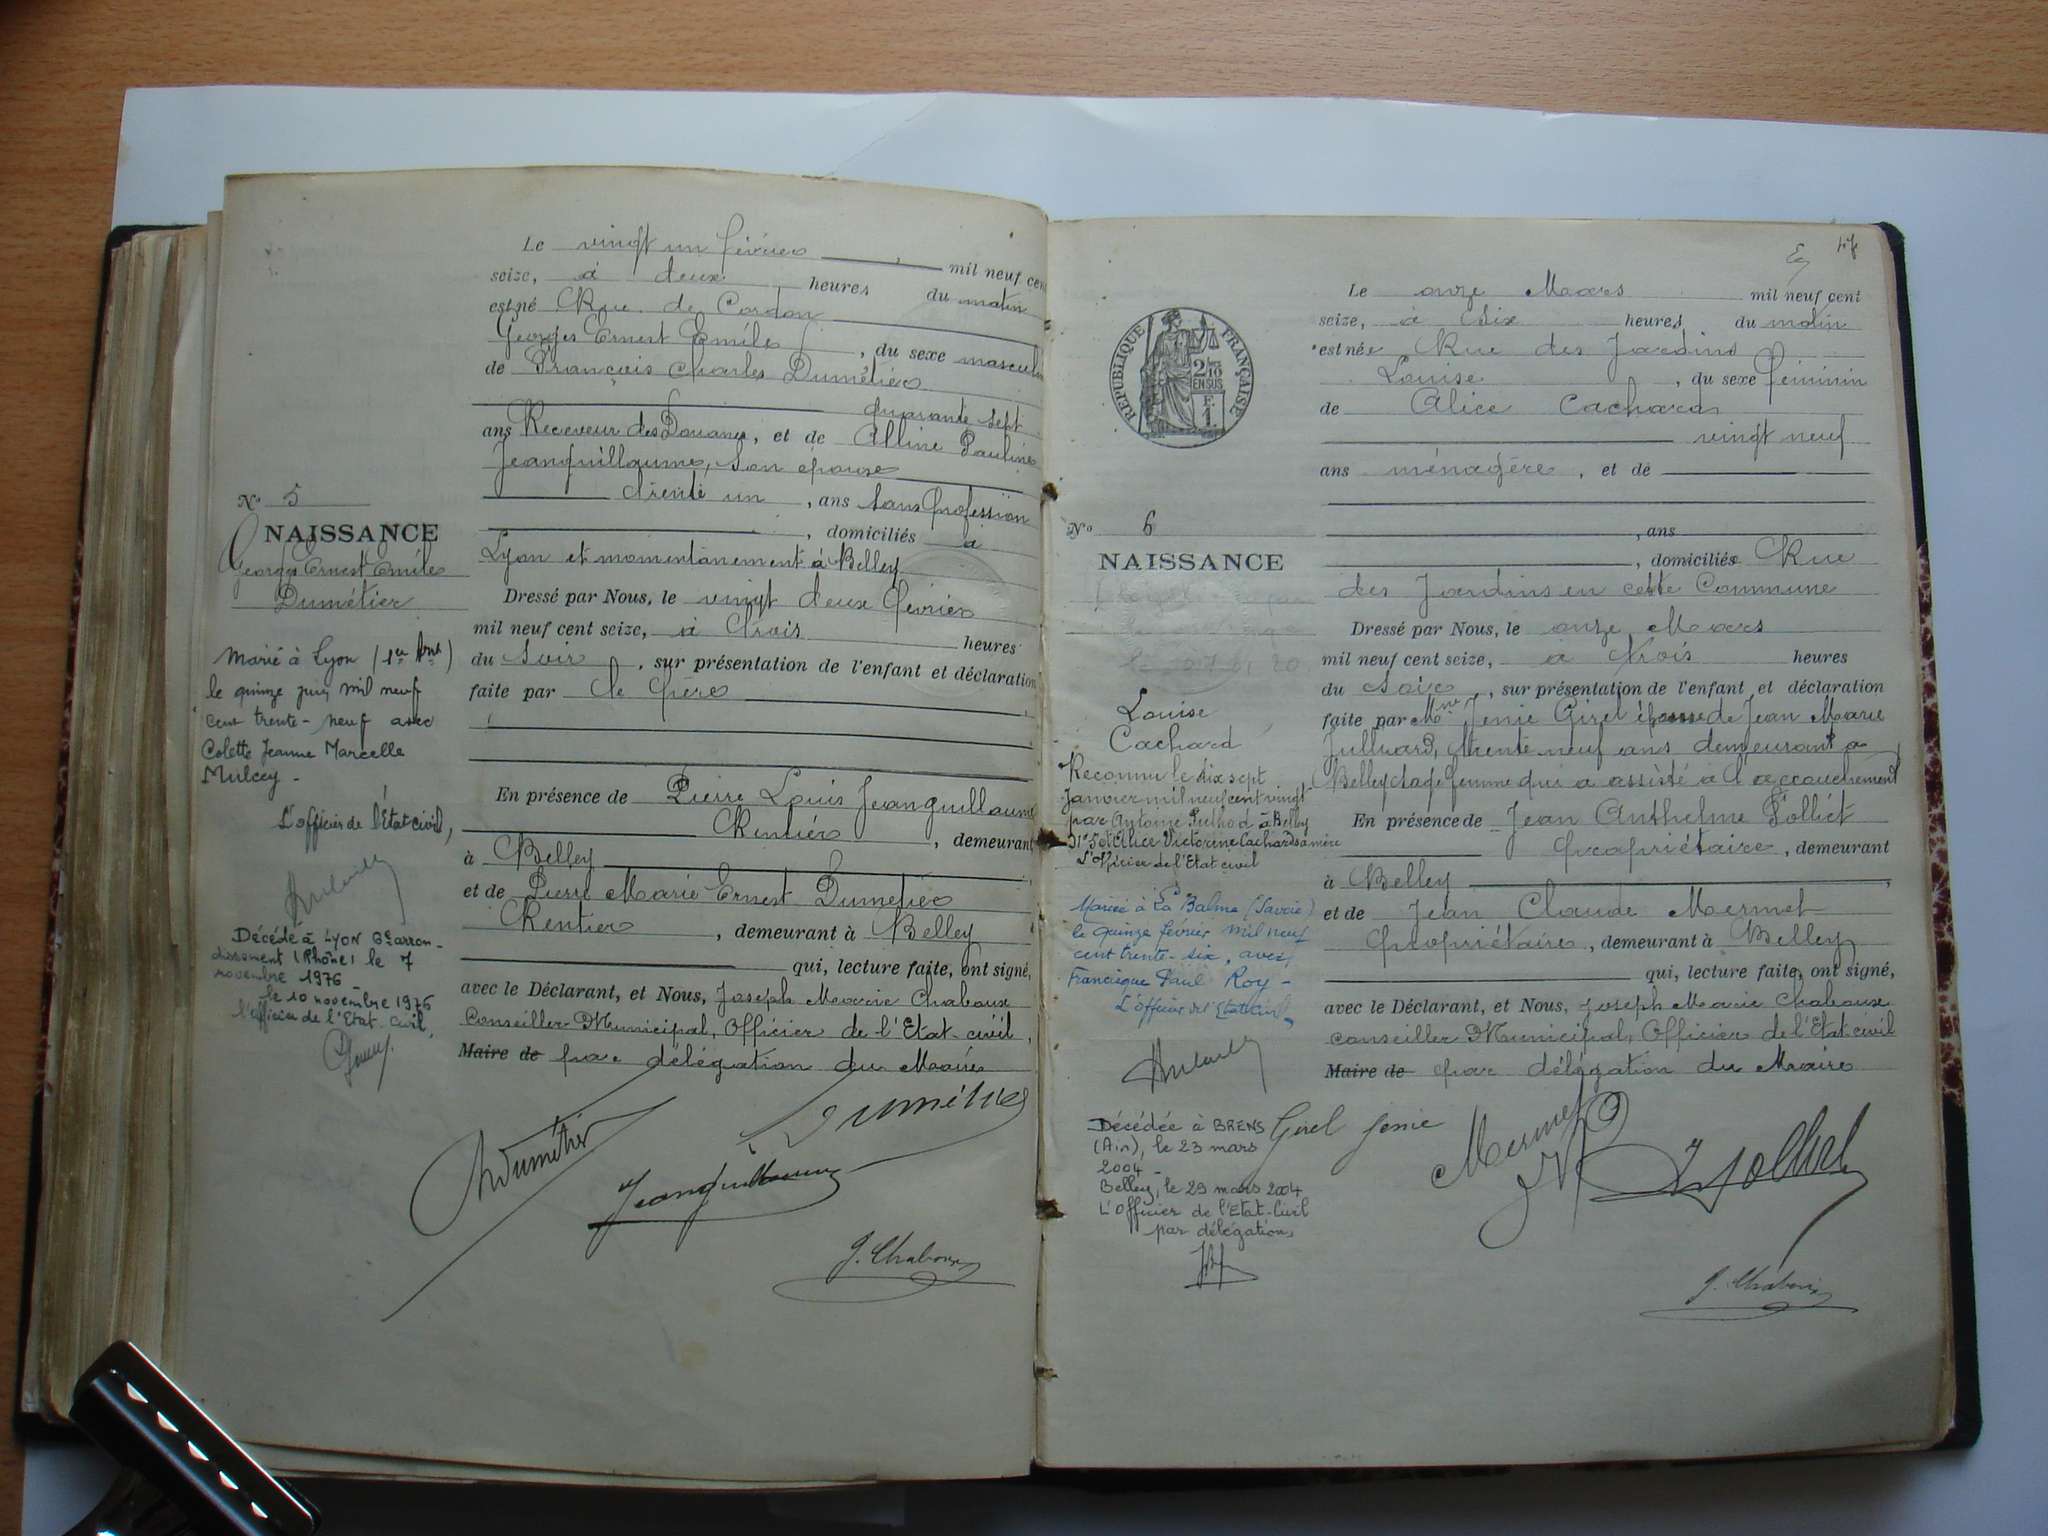 Le vingt un février mil neuf cent
seize, à deux heures du matin
est né Rue de Cordon
Georges Ernest Emile, du sexe masculin
de François Charles Dumétier
quarante sept
ans Receveur des Douanes, et de Alline Pauline
Jeanguillaume, son épouse
trente un, ans sans profession
, domiciliés à
Lyon et momentanément à Belley
Dressé par Nous, le vingt deux février
mil neuf cent seize, à trois heures
du soir, sur présentation de l'enfant et déclaration
faite par le père
En présence de Pierre Louis Jeanguillaume
Rentier, demeurant
à Belley
et de Pierre Marie Ernest Dumétier
Rentier, demeurant à Belley
qui, lecture faite, ont signé,
avec le Déclarant, et Nous, Joseph Marie Chaboux
Conseiller Municipal, Officier de l'Etat-civil,
Maire de par délégation du Maire
Dumétier
Dumétier
Jeanguillaume
J. Chaboux
No 5
NAISSANCE
Georges Ernest Emile
Dumétier
Marié à Lyon (1er Arrt)
le quinze juin mil neuf
cent trente-neuf avec
Colette Jeanne Marcelle
Mulcey -
L'officier de l'Etat civil,
Décédé à LYON 6e arron-
dissement (Rhône) le 7
novembre 1976 -
le 10 novembre 1976
l'officier de l'Etat-Civil,
Le onze Mars mil neuf cent
seize, à six heures du matin
est née Rue des Jardins
Louise, du sexe féminin
de Alice Cachard
vingt neuf
ans ménagère, et de
, ans
, domiciliée Rue
des Jardins en cette Commune
Dressé par Nous, le onze Mars
mil neuf cent seize, à trois heures
du soir, sur présentation de l'enfant et déclaration
faite par Mme Jenie Girel épouse de Jean Marie
Julliard, trente neuf ans demeurant à
Belley sage femme qui a assisté à l'accouchement
En présence de Jean Anthelme Folliet
propriétaire, demeurant
à Belley
et de Jean Claude Mermet
propriétaire, demeurant à Belley
qui, lecture faite, ont signé,
avec le Déclarant, et Nous, Joseph Marie Chaboux
Conseiller Municipal, Officier de l'Etat civil
Maire de par délégation du Maire
Girel Jenie
Mermet
J. Folliet
J. Chaboux
RÉPUBLIQUE FRANÇAISE
2/10
EN SUS
F.
1.
No 6
NAISSANCE
Louise
Cachard
Reconnu le dix sept
Janvier mil neuf cent vingt
par Antoine à Belley
et Alice Victorine Cachard sa mère
L'Officier de l'Etat civil
Mariée à La Balme (Savoie)
le quinze février mil neuf
cent trente-six, avec
Francisque Paul Roy -
L'officier de l'Etat civil,
Décédée à BRENS
(Ain), le 23 mars
2004 -
Belley, le 29 mars 2004
L'Officier de l'Etat-Civil
par délégation,